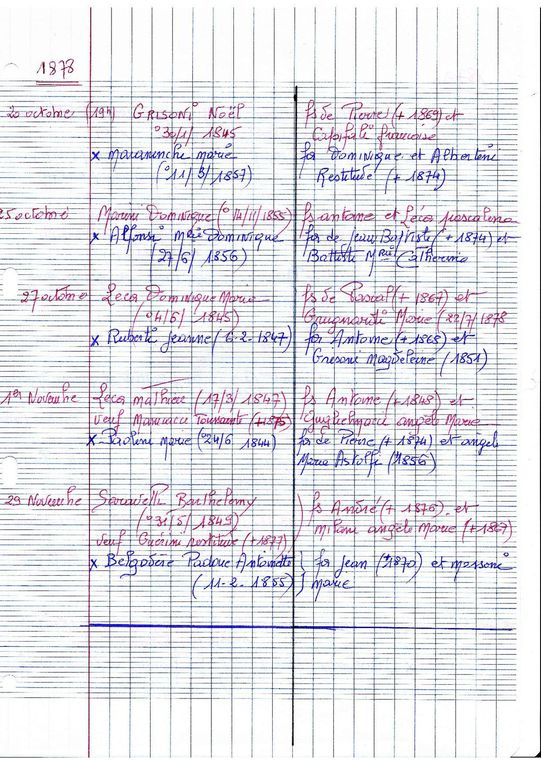 1878
20 octobre (19h) GRISONI Noël fs de Pierre (+ 1869) et
°30/1/ 1845 Capifali françoise
x Maranenchi marie fa Dominique et Albertini
(°11/3/1857) Restitude (+ 1874)
25 octobre Marini Dominique (°14/11/1855) fs antoine et Leca pascalina
x Alfonsi Mie Dominique fa de Jean Baptiste (+ 1874) et
(27/6/ 1856) Battisti Mie Catherine
27 octobre Leca Dominique Marie fs de Pascal (+ 1867) et
(°4/6/ 1845) Marie (22/7/1878
x Ruberti Jeanne (6-2-1847) fa Antoine (+ 1868) et
Grisoni Magdeleine (1851)
1er Novembre Leca mathieu (17/3/1847) fs Antoine (+ 1848) et
veuf Toussainte (+1875) Guglielmacci angele Marie
x Paolini marie (°24/6 1844) fa de Pierre (+ 1874) et angele
Marie Astolfi (1856)
29 Novembre Saravelli Barthelemy fs André (+ 1876) et
(°31/5/1849) milani angele Marie (+1867)
veuf Guérini restitude (+1877)
x Belgodère Padoue Antoinette fa Jean (+1870) et massoni
(11-2-1855) marie